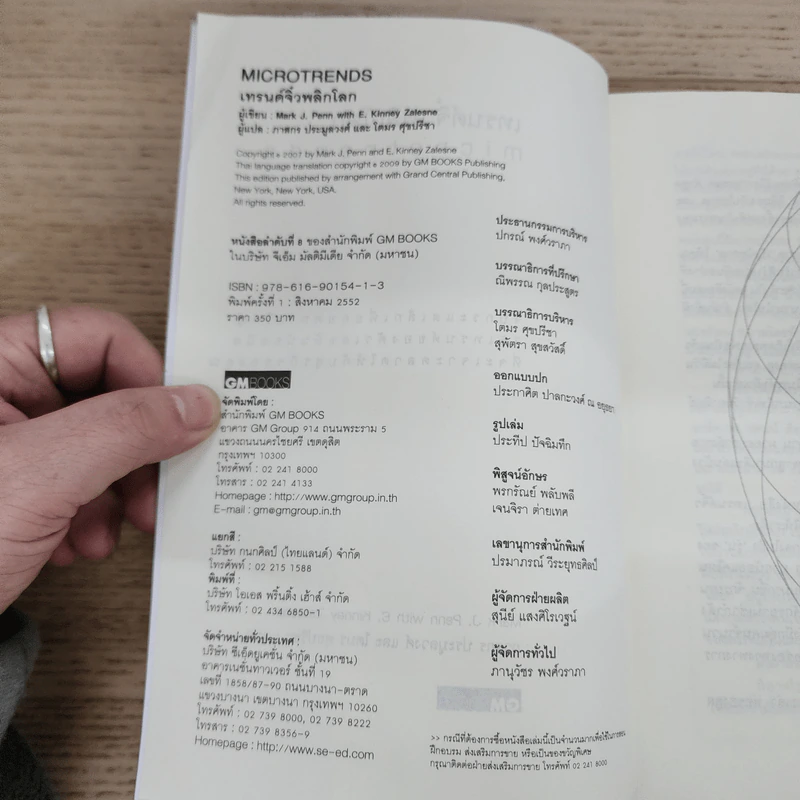 MICROTRENDS
เทรนด์จิ๋วพลิกโลก
ผู้เขียน : Mark J. Penn with E. Kinney Zalesne
ผู้แปล : ภาสกร ประมูลวงศ์ และ โตมร ศุขปรีชา
Copyright © 2007 by Mark J. Penn and E. Kinney Zalesne
Thai language translation copyright © 2009 by GM BOOKS Publishing
This edition published by arrangement with Grand Central Publishing,
New York, New York, USA.
All rights reserved.
หนังสือลำดับที่ 8 ของสำนักพิมพ์ GM BOOKS
ในบริษัท จีเอ็ม มัลติมีเดีย จำกัด (มหาชน)
ISBN : 978-616-90154-1-3
พิมพ์ครั้งที่ 1 : สิงหาคม 2552
ราคา 350 บาท
GMBOOKS
จัดพิมพ์โดย :
สำนักพิมพ์ GM BOOKS
อาคาร GM Group 914 ถนนพระราม 5
แขวงถนนนครไชยศรี เขตดุสิต
กรุงเทพฯ 10300
โทรศัพท์ : 02 241 8000
โทรสาร : 02 241 4133
Homepage : http://www.gmgroup.in.th
E-mail : gm@gmgroup.in.th
แยกสี :
บริษัท กนกศิลป์ (ไทยแลนด์) จำกัด
โทรศัพท์ : 02 215 1588
พิมพ์ที่ :
บริษัท โอเอส พริ้นติ้ง เฮ้าส์ จำกัด
โทรศัพท์ : 02 434 6850-1
จัดจำหน่ายทั่วประเทศ :
บริษัท ซีเอ็ดยูเคชั่น จำกัด (มหาชน)
อาคารเนชั่นทาวเวอร์ ชั้นที่ 19
เลขที่ 1858/87-90 ถนนบางนา-ตราด
แขวงบางนา เขตบางนา กรุงเทพฯ 10260
โทรศัพท์ : 02 739 8000, 02 739 8222
โทรสาร : 02 739 8356-9
Homepage : http://www.se-ed.com
ประธานกรรมการบริหาร
ปกรณ์ พงศ์วราภา
บรรณาธิการที่ปรึกษา
ณิพรรณ กุลประสูตร
บรรณาธิการบริหาร
โตมร ศุขปรีชา
สุพัตรา สุขสวัสดิ์
ออกแบบปก
ประกาศิต ปาลกะวงศ์ ณ อยุธยา
รูปเล่ม
ประทีป ปัจฉิมทึก
พิสูจน์อักษร
พรกรัณย์ พลับพลี
เจนจิรา ต่ายเทศ
เลขานุการสำนักพิมพ์
ปรมาภรณ์ วีระยุทธศิลป์
ผู้จัดการฝ่ายผลิต
สุนีย์ แสงศิโรเวฐน์
ผู้จัดการทั่วไป
ภานุวัชร พงศ์วราภา
>> กรณีที่ต้องการซื้อหนังสือเล่มนี้เป็นจำนวนมากเพื่อใช้ในการสอน
ฝึกอบรม ส่งเสริมการขาย หรือเป็นของขวัญพิเศษ
กรุณาติดต่อฝ่ายส่งเสริมการขาย โทรศัพท์ 02 241 8000